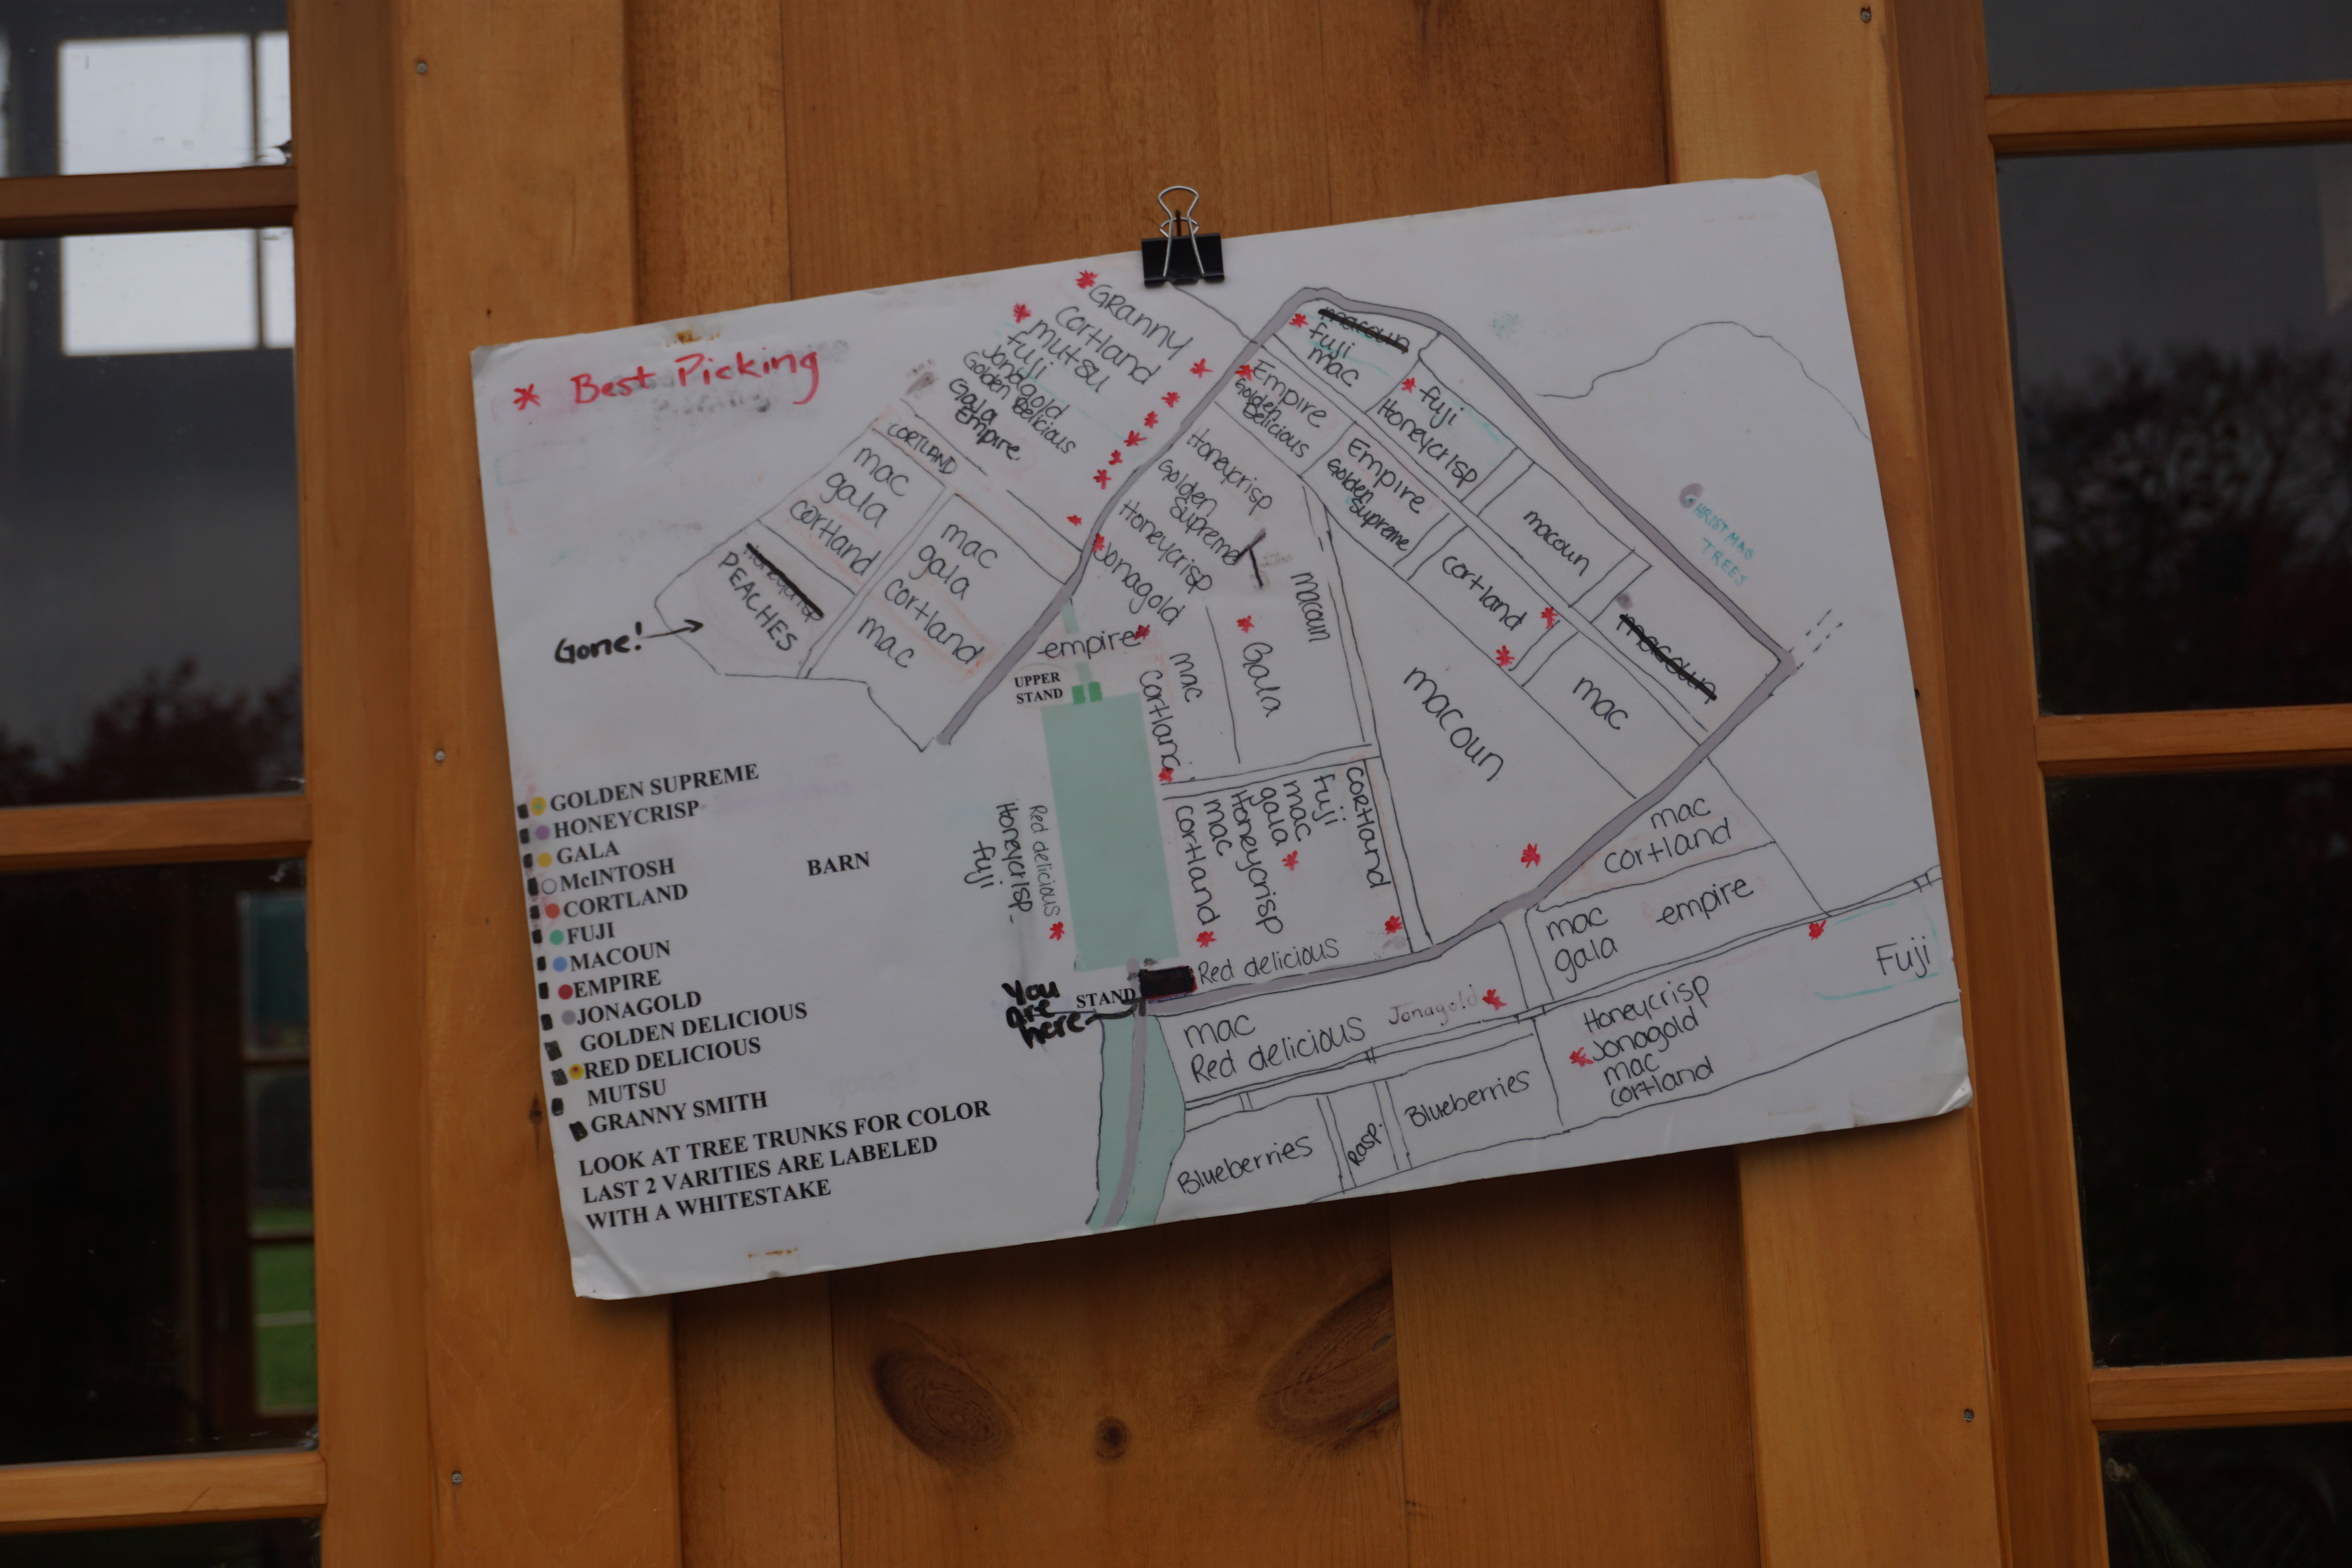 * Best Picking
* Granny
Cortland
* mutsu
fuji
Jonagold
Golden Delicious
Gala
Empire
CORTLAND
mac
gala
cortland
PEACHES
Gone!
mac
gala
cortland
mac
macoun
* fuji
mac
* fuji
Honeycrisp
* Empire
Golden
Delicious
Empire
Golden
Supreme
macoun
cortland
macoun
mac
CHRISTMAS
TREES
Honeycrisp
Golden
Supreme
Honeycrisp
* Jonagold
macoun
empire *
mac
Cortland
* Gala
macoun
UPPER
STAND
Red delicious *
Honeycrisp
fuji
cortland *
mac
Honeycrisp
gala *
mac
fuji
cortland
Red delicious
mac
cortland
mac
gala
empire
Fuji
Honeycrisp
* Jonagold
mac
cortland
mac
Red delicious
Jonagold *
Blueberries
Rasp.
Blueberries
STAND
You
are
here
BARN
GOLDEN SUPREME
HONEYCRISP
GALA
McINTOSH
CORTLAND
FUJI
MACOUN
EMPIRE
JONAGOLD
GOLDEN DELICIOUS
RED DELICIOUS
MUTSU
GRANNY SMITH
LOOK AT TREE TRUNKS FOR COLOR
LAST 2 VARITIES ARE LABELED
WITH A WHITESTAKE